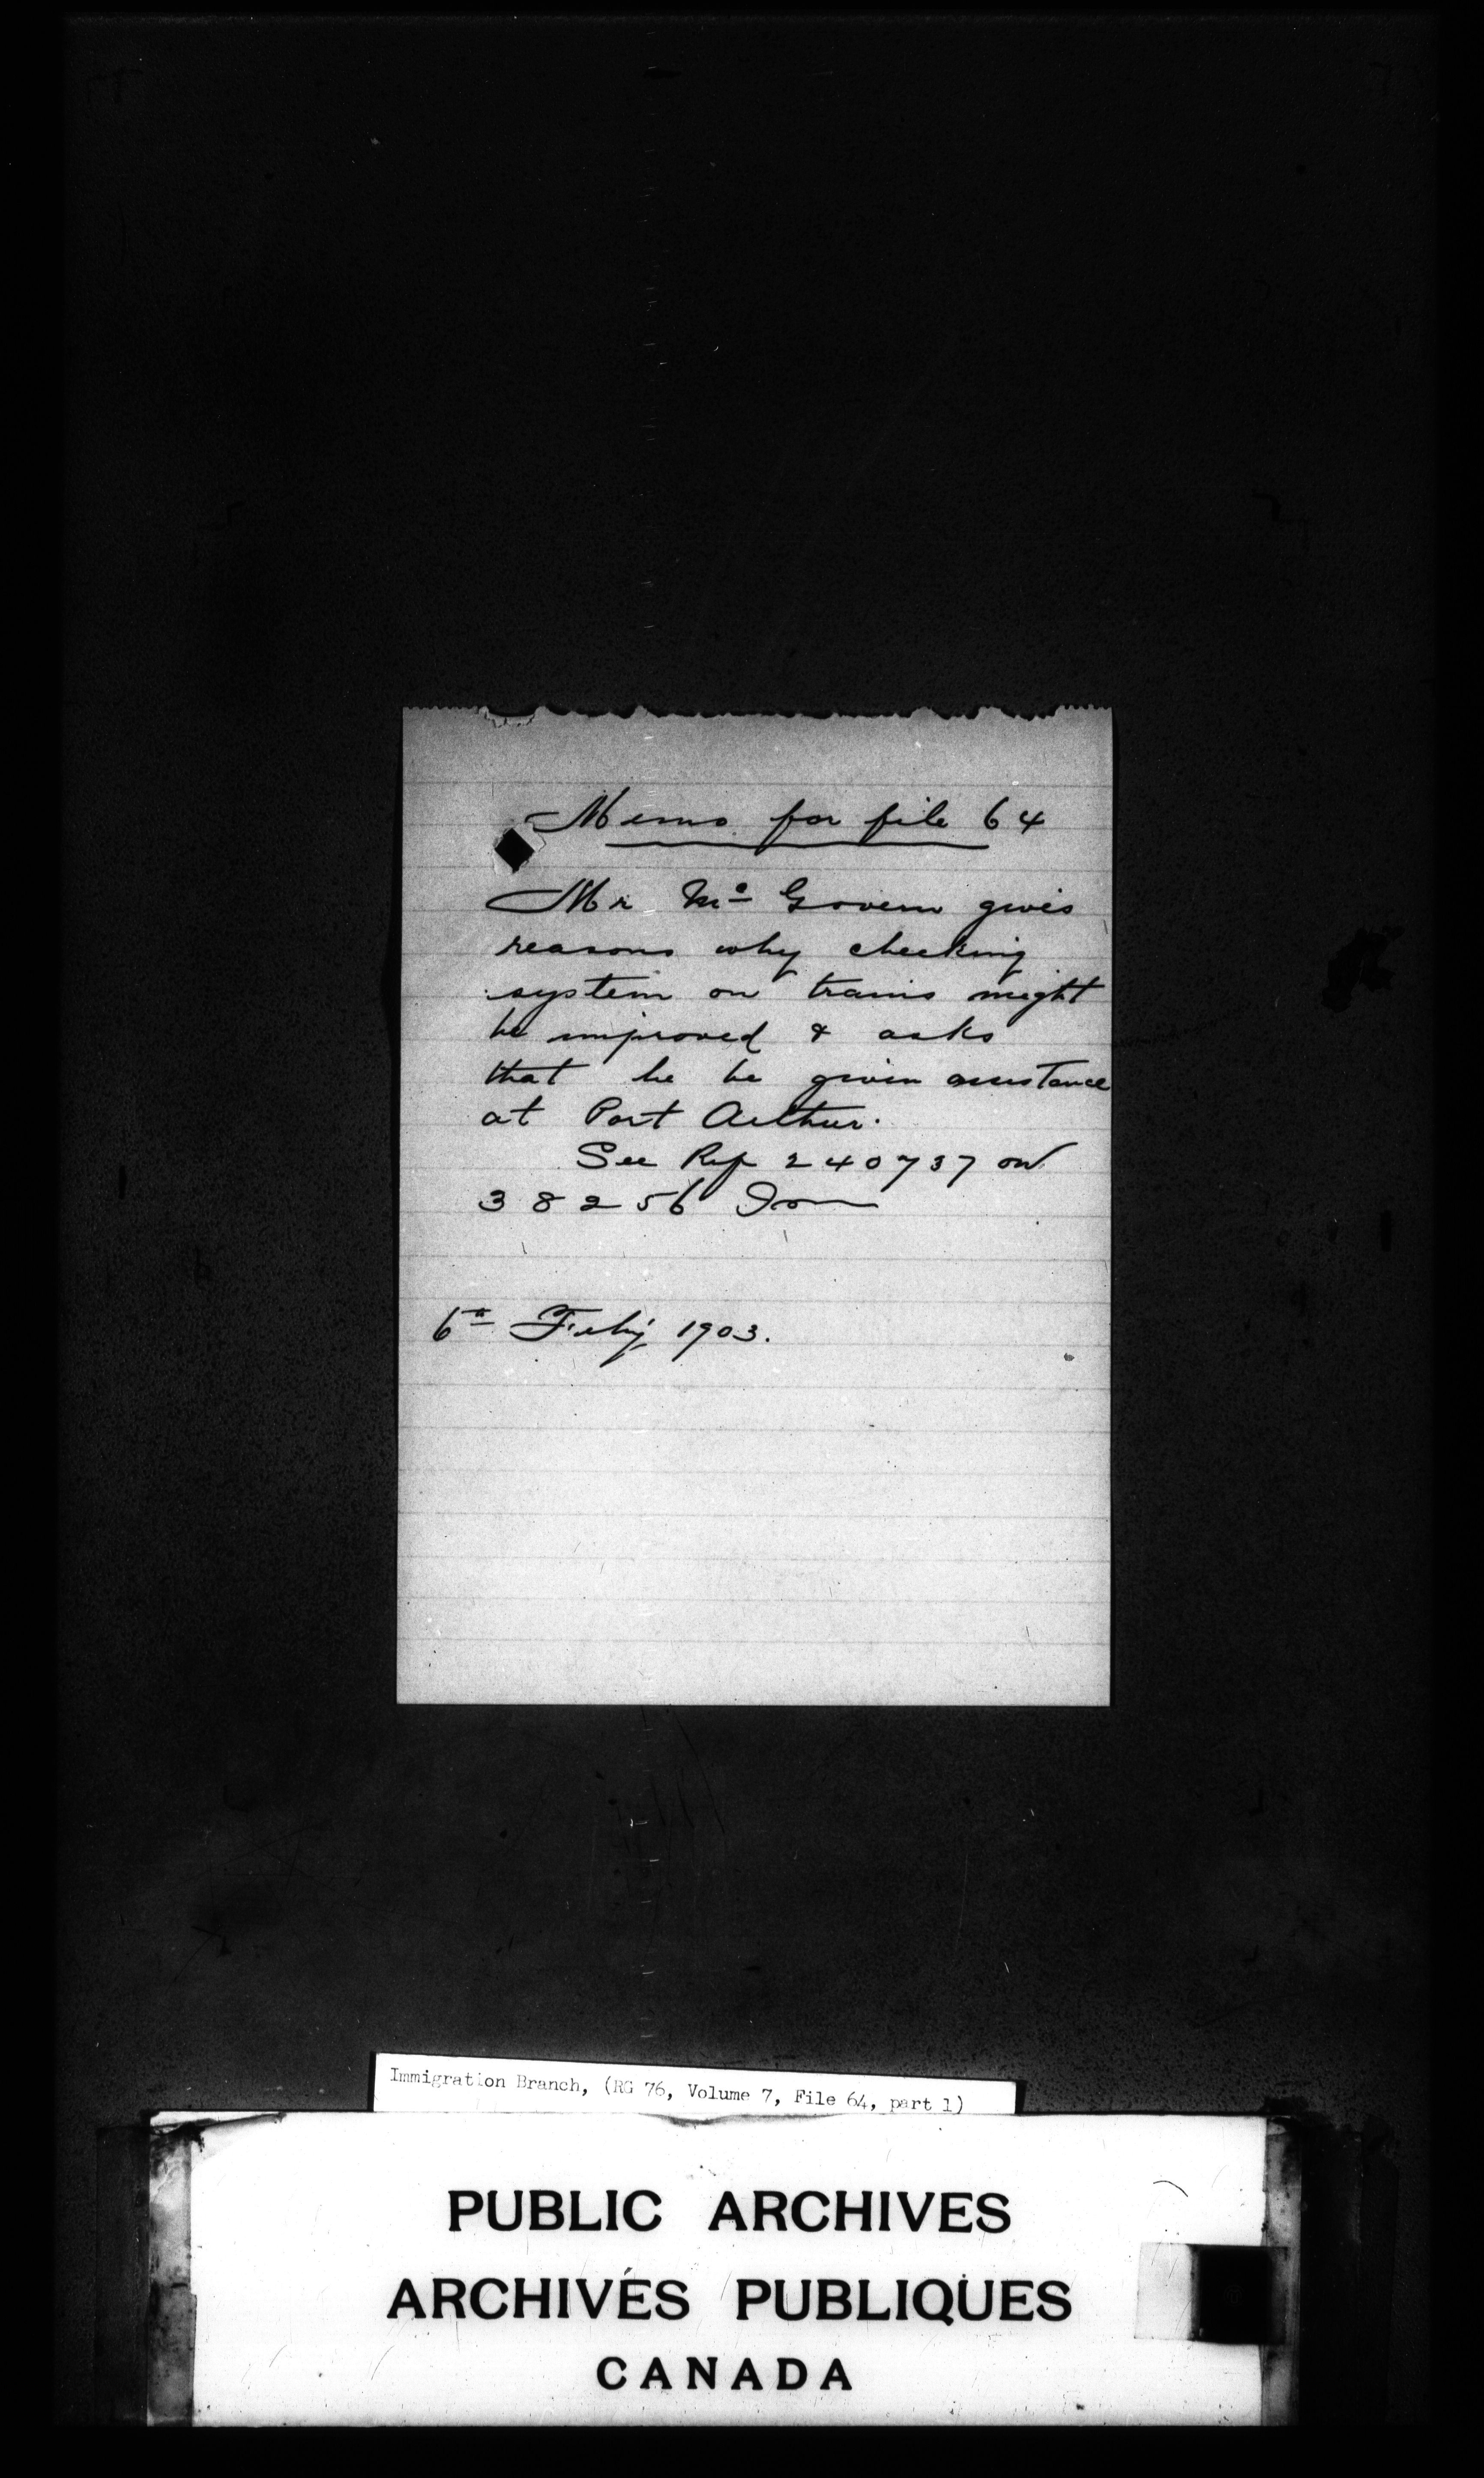 Memo for file 64
Mr Mc Govern gives
reasons why checking
system on trains might
be improved & asks
that he be given assistance
at Port Arthur.
See Ref 240737 on
38256 Imm
6th Feby 1903.
Immigration Branch, (RG 76, Volume 7, File 64, part 1)
PUBLIC ARCHIVES
ARCHIVES PUBLIQUES
CANADA